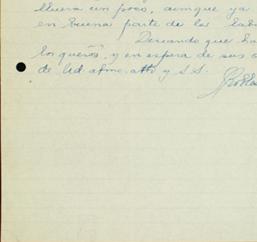 llueva un poco, aunque ya
en buena parte de las
Deseando que
los quereis, y en espera de sus
de Ud afmo. atto y S.S.